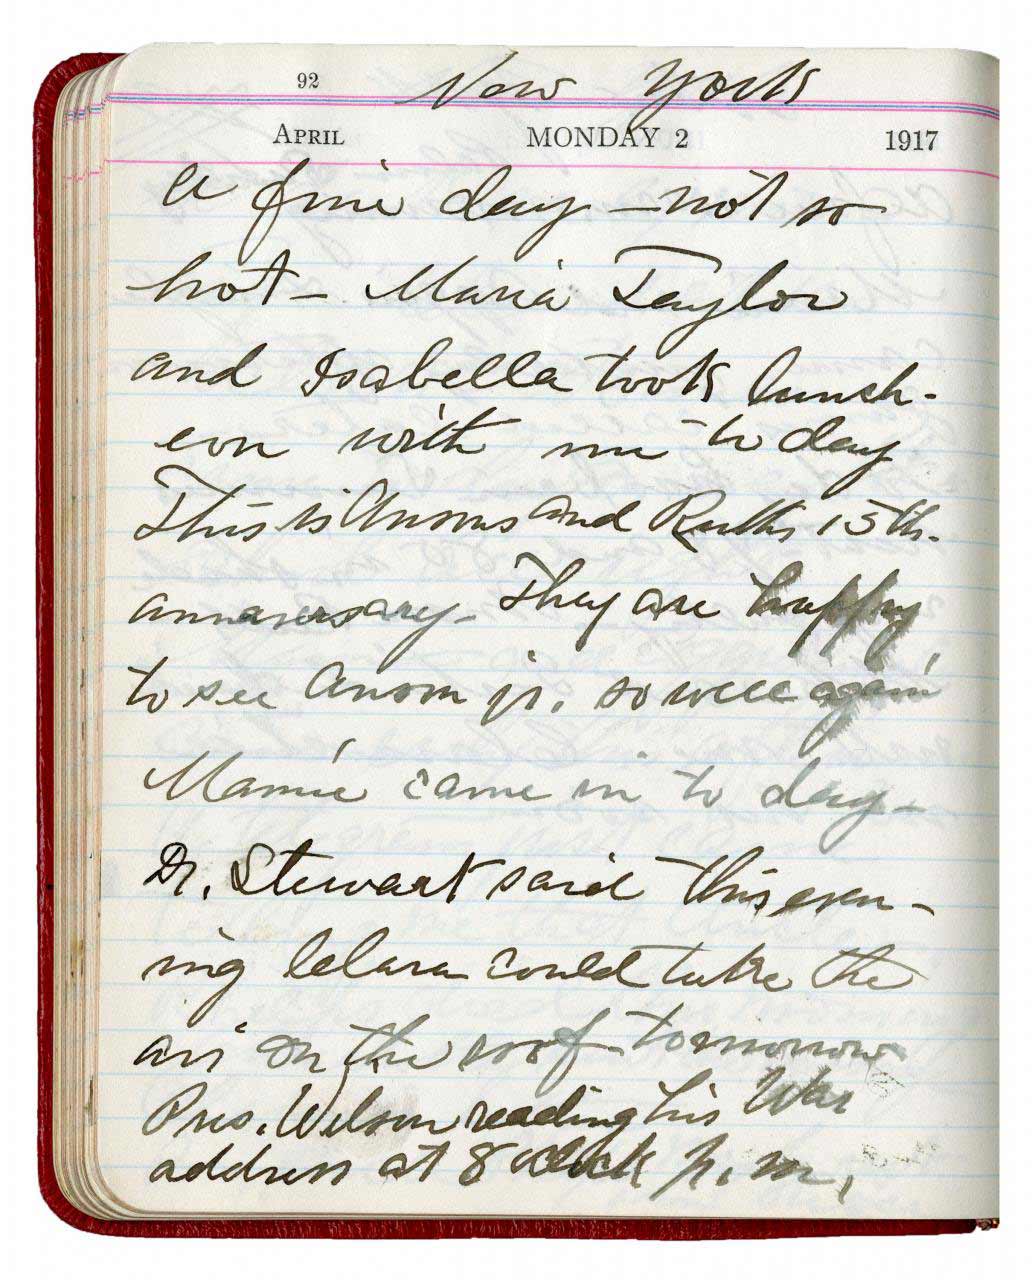 92 New York
April MONDAY 2 1917
a fine day – not so
hot – Maria Taylor
and Isabella took lunch-
eon with me to day
This is Ansons and Ruths 15th.
anniversary – They are happy,
to see Anson jr. so well again
Mamie came in to day –
Dr. Stewart said this even-
ing Clara could take the
air on the roof tomorrow
Pres. Wilson reading his War
address at 8 oclock p.m.,